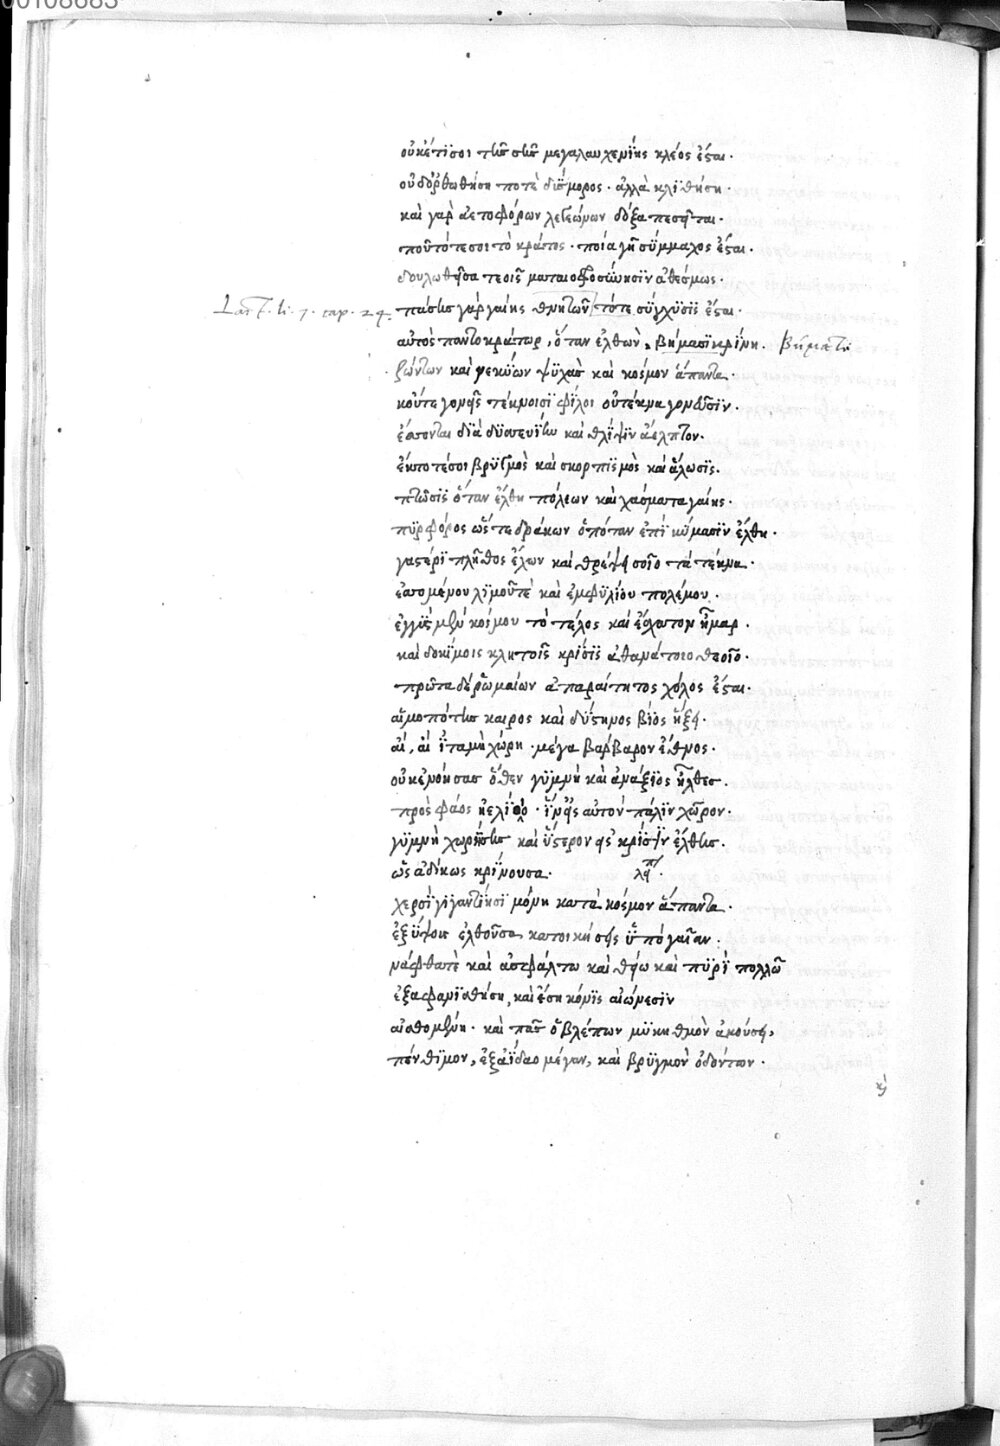 00108683
οὐκέτι σοι τῆς σῆς μεγαλαυχενίης κλέος ἔσται.
οὐδ' ὀρθωθήσῃ ποτὲ δύσμορος. ἀλλὰ κλιθήσῃ.
καὶ γὰρ ἀετοφόρων λεγεώμων δόξα πεσεῖται.
ποῦ τότε σοι τὸ κράτος. ποία γῆ σύμμαχος ἔσται.
δουλωθεῖσα τεοῖς ματαιοφροσύνησϊν ἀθέσμως.
Lact. li. 7. cap. 24. πάσης γὰρ γαίης θνητῶν τότε σύγχϋσϊς ἔσται.
αὐτὸς παντοκράτωρ, ὅταν ἐλθὼν, βήμασϊ κρίνῃ. βήματι
ζώντων καὶ νεκύων ψϋχὰς καὶ κόσμον ἅπαντα.
κοὔτε γονεῖς τέκνοισϊ φίλοι οὐ τέκνα γονεῦσϊν.
ἔσσονται δϊὰ δϋσσευίην καὶ θλίψϊν ἄελπτον.
ἔκποτέ σοι βρϋγμὸς καὶ σκορπϊσμὸς καὶ ἅλωσϊς.
πτῶσϊς ὅταν ἔλθῃ πόλεων καὶ χάσματα γαίης.
πϋρφόρος ὥστε δράκων ὁπόταν ἐπὶ κύμασϊν ἔλθῃ.
γαστέρϊ πλῆθος ἔχων καὶ θρέψει σοῖο τὰ τέκνα.
ἐσσομένου λϊμοῦ τὲ καὶ ἐμφϋλίου πολέμου.
ἐγγὺς μὲν κόσμου τὸ τέλος καὶ ἔσχατον ἦμαρ.
καὶ δοκίμοις κλητοῖς κρίσϊς ἀθανάτοιο θεοῖο.
πρῶτα δὲ ῥωμαίων ἀπαραίτητος χόλος ἔσται.
αἱμοπότης καιρος καὶ δύστηνος βίος ἥξει.
αἴ, αἴ ἰταλὴ χώρη. μέγα βάρβαρον ἔθνος.
οὐκ ἐνόησας ὅθεν γϋμνὴ καὶ ἀνάξϊος ἦλθες.
πρὸς φάος ἠελίοιο. ἵν' εἰς αὐτὸν πάλϊν χῶρον.
γϋμνὴ χωρήσῃς καὶ ὕστερον εἰς κρίσϊν ἔλθῃς.
ὡς ἀδίκως κρίνουσα. λείπει
χερσὶ γϊγαντίησϊ μόνη κατὰ κόσμον ἅπαντα.
ἐξ ὕψους ἐλθοῦσα κατοικήσεις ὑπὸ γαῖαν.
νάφθα τὲ καὶ ἀσφάλτω καὶ θείω καὶ πϋρὶ πολλῶ
ἐξαφανϊσθήσῃ, καὶ ἔσῃ κόνϊς αἰώνεσϊν
αἰθομένη. καὶ πᾶς ὁ βλέπων μϋκηθμὸν ἀκούσει,
πένθϊμον, ἐξ ἀΐδαο μέγαν, καὶ βρϋγμὸν ὀδόντων.
καὶ